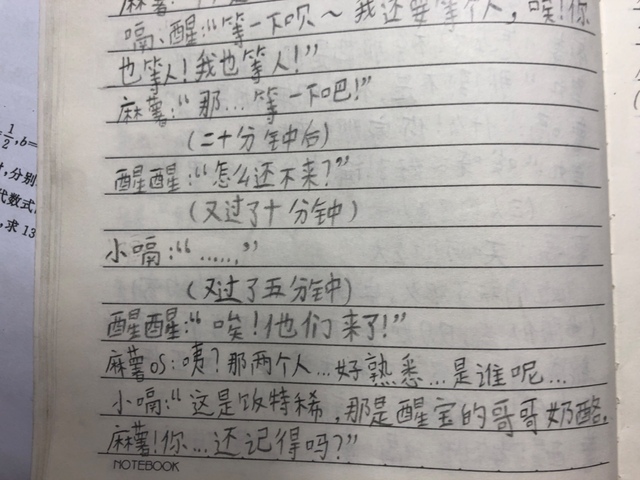 嗝、醒:“等一下呗～我还要等个人,唉!你
也等人!我也等人!”
麻薯:“那...等一下吧!”
(二十分钟后)
醒醒:“怎么还不来?”
(又过了十分钟)
小嗝:“......”
(又过了五分钟)
醒醒:“唉!他们来了!”
麻薯OS:咦?那两个人...好熟悉...是谁呢...
小嗝:“这是饭特稀,那是醒宝的哥哥奶酪,
麻薯!你...还记得吗?”
NOTEBOOK
1/2,b=
,分别
代数式
,求13